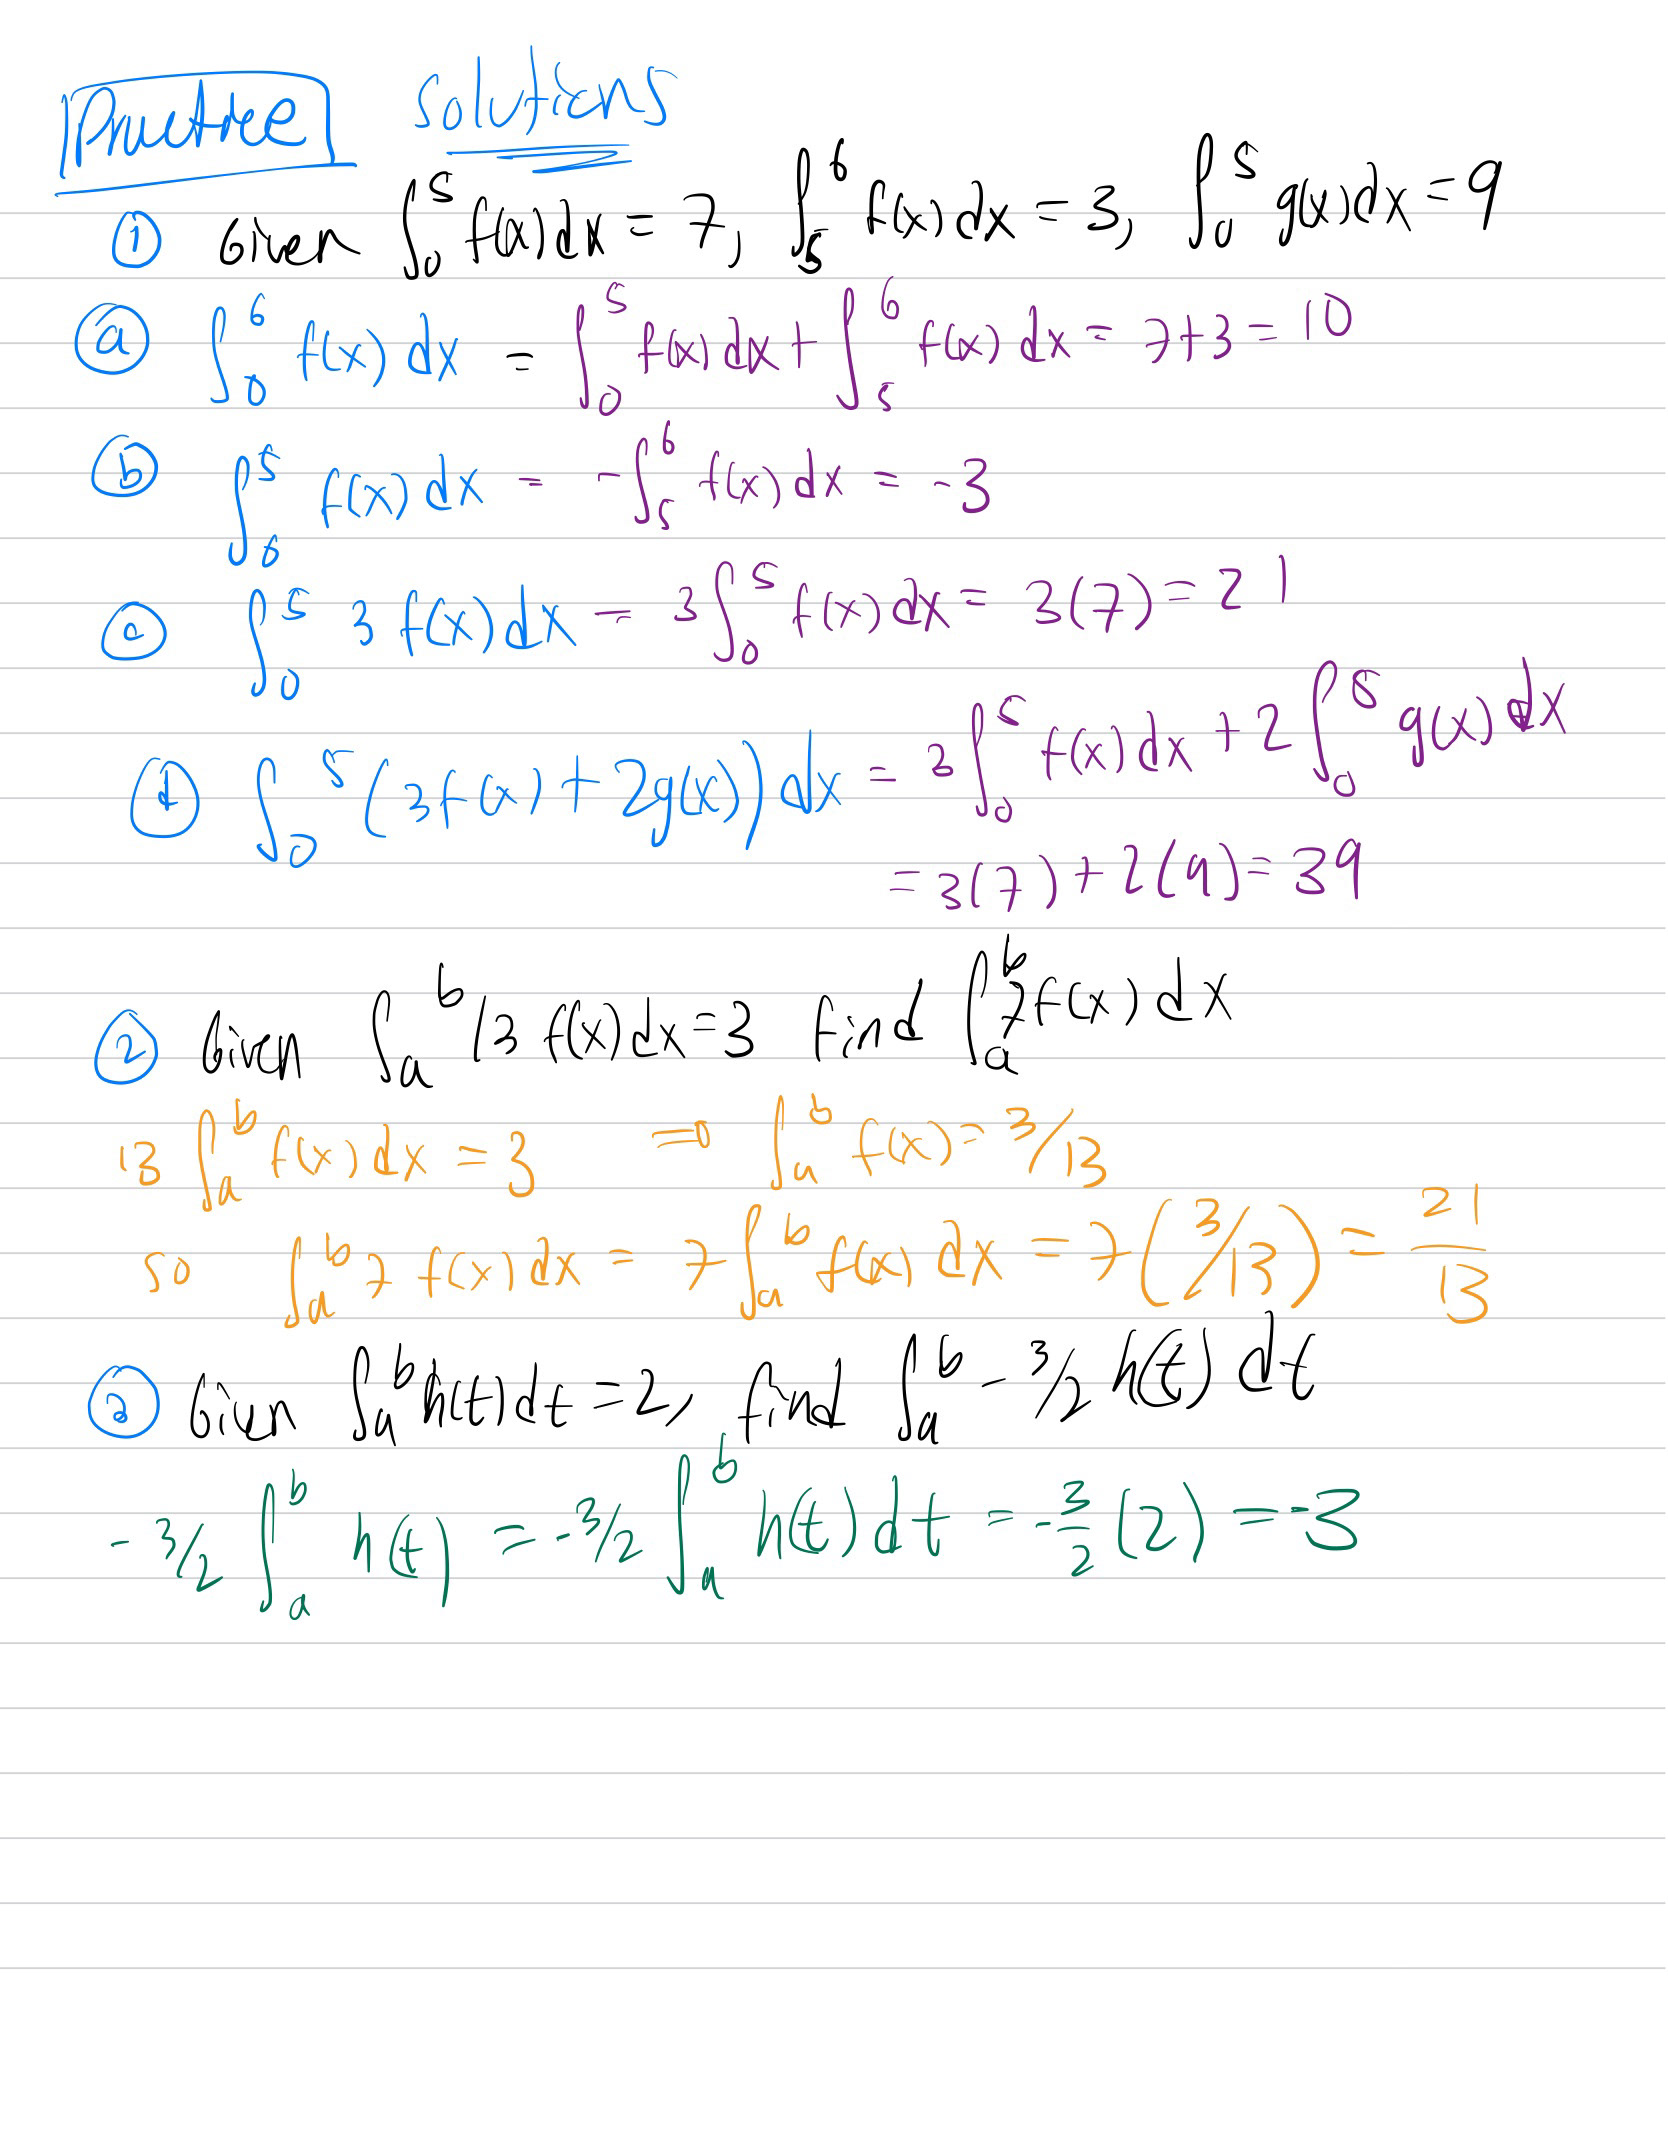 Practice solutions
① Given ∫₀⁵ f(x)dx = 7, ∫₅⁶ f(x)dx = 3, ∫₀⁵ g(x)dx = 9
ⓐ ∫₀⁶ f(x) dx = ∫₀⁵ f(x) dx + ∫₅⁶ f(x) dx = 7+3 = 10
ⓑ ∫₆⁵ f(x) dx = -∫₅⁶ f(x) dx = -3
ⓒ ∫₀⁵ 3 f(x) dx = 3∫₀⁵ f(x) dx = 3(7) = 21
ⓓ ∫₀⁵ (3f(x) + 2g(x)) dx = 3∫₀⁵ f(x) dx + 2∫₀⁵ g(x) dx
= 3(7) + 2(9) = 39
② Given ∫ₐᵇ 13 f(x) dx = 3 find ∫ₐᵇ 7f(x) dx
13 ∫ₐᵇ f(x) dx = 3 ⇒ ∫ₐᵇ f(x) = 3/13
so ∫ₐᵇ 7 f(x) dx = 7∫ₐᵇ f(x) dx = 7(3/13) = 21/13
③ Given ∫ₐᵇ h(t) dt = 2, find ∫ₐᵇ - 3/2 h(t) dt
- 3/2 ∫ₐᵇ h(t) = - 3/2 ∫ₐᵇ h(t) dt = - 3/2 (2) = -3